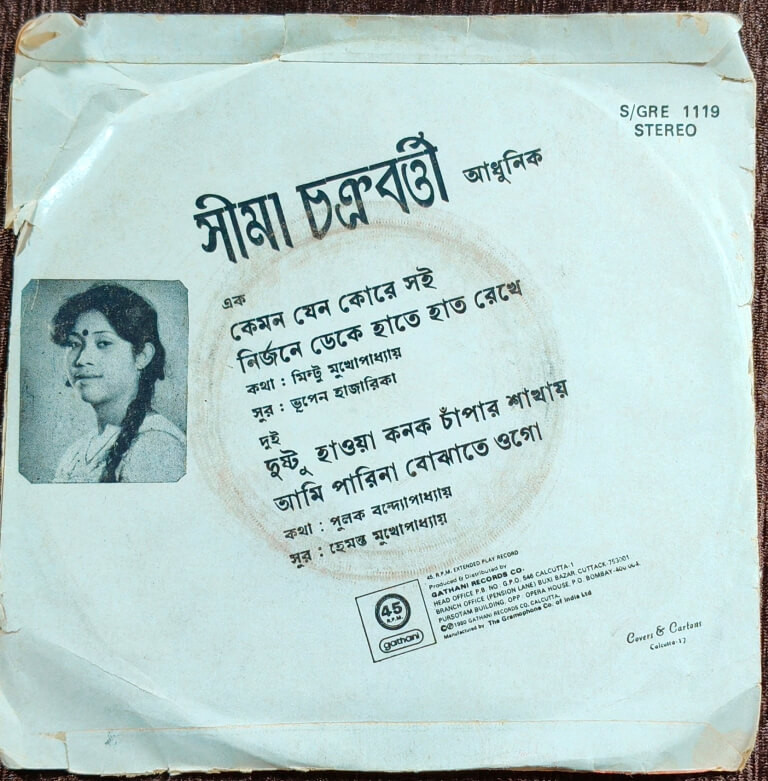 S/GRE 1119
STEREO
সীমা চক্রবর্ত্তী আধুনিক
এক
কেমন যেন কোরে সই
নির্জনে ডেকে হাতে হাত রেখে
কথা : মিন্টু মুখোপাধ্যায়
সুর : ভূপেন হাজারিকা
দুই
দুষ্টু হাওয়া কনক চাঁপার শাখায়
আমি পারিনা বোঝাতে ওগো
কথা : পুলক বন্দ্যোপাধ্যায়
সুর : হেমন্ত মুখোপাধ্যায়
45
R.P.M.
gathani
45, R.P.M. EXTENDED PLAY RECORD
Produced & Distributed by
GATHANI RECORDS CO.
HEAD OFFICE P.B. NO. G.P.O. 546 CALCUTTA-1
BRANCH OFFICE (PENSION LANE) BUXI BAZAR, CUTTACK-753001
PURSOTAM BUILDING, OPP OPERA HOUSE P.O. BOMBAY-400
©℗1980 GATHANI RECORDS CO, CALCUTTA,
Manufactured by The Gramophone Co. of India Ltd
Covers & Cartons
Calcutta-12